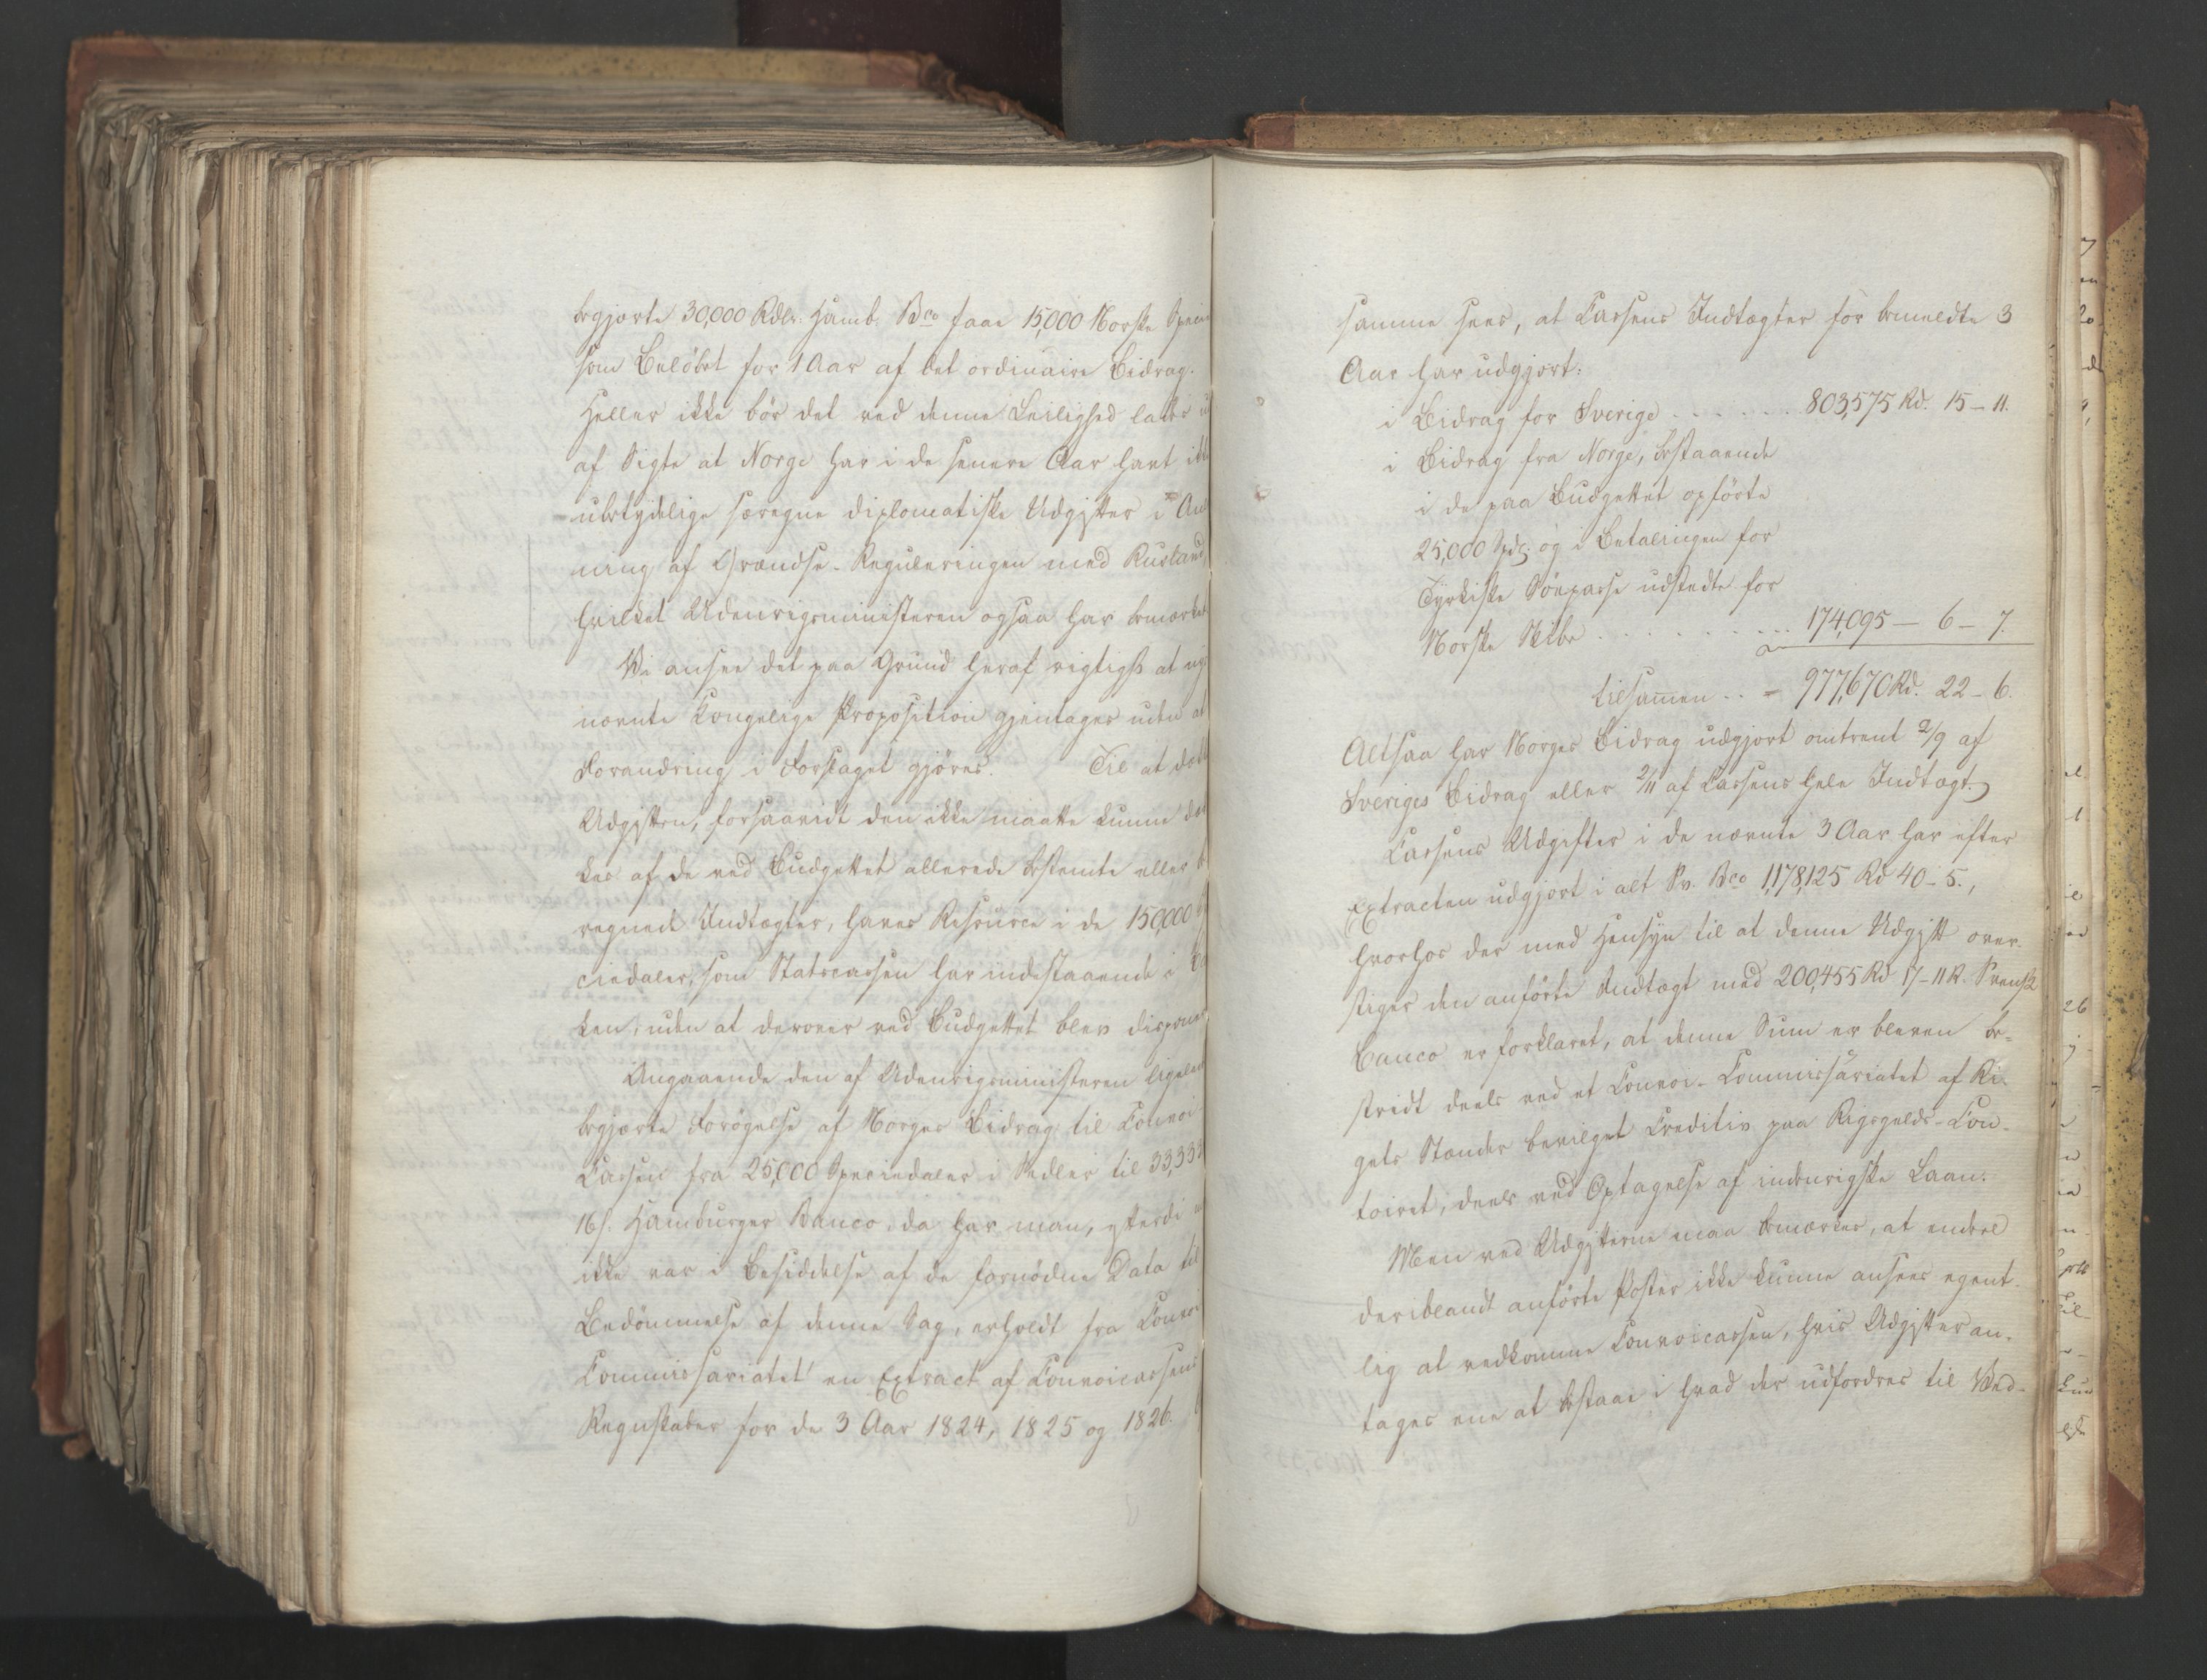 begjærte 30,000 Rdlr. Hamb. Bco faae 15,000 Norske Specie
som Beløbet for 1 Aar af det ordinaire Bidrag.
Heller ikke bør det ved denne Leilighed lades u
af Sigte at Norge har i de senere Aar havt ikke
ubetydelige særegne diplomatiske Udgifter i An
ning af Grændse-Reguleringen med Rusland,
hvilket Udenrigsministeren ogsaa har bemærket
Vi ansee det paa Grund heraf rigtigst at
nævnte Kongelige Proposition gjentages uden at
Forandring i Forslaget gjøres. Til at dække
Udgiften, forsaavidt den ikke maatte kunne dæk
kes af de ved Budgettet allerede bestemte eller
regnede Indtægter, haves Resource i de 150,000
ciedaler, som Statscassen har indestaaende i
ken, uden at derover ved Budgettet blev disponer
Angaaende den af Udenrigsministeren ligeled
begjærte Forøgelse af Norges Bidrag til Convoi
Cassen fra 25,000 Speciedaler i Sedler til 33,333
16 s. Hamburger Banco, da har man, efterdi
ikke var i Besiddelse af de fornødne Data til
Bedømmelse af denne Sag, erholdt fra Convoi
Commissariatet en Extract af Convoicassens
Regnskaber for de 3 Aar 1824, 1825 og 1826.
samme sees, at Cassens Indtægter for bemeldte 3
Aar har udgjort:
i Bidrag for Sverige . . . . . . 803,575 Rd. 15 – 11.
i Bidrag fra Norge, bestaaende
i de paa Budgettet opførte
25,000 Spd. og i Betalingen for
Tyrkiske Søepasse udstedte for
Norske Skibe . . . . . . . . . . . 174,095 – 6 – 7.
tilsammen . . = 977,670 Rd. 22 – 6.
Altsaa har Norges Bidrag udgjort omtrent 2/9 af
Sveriges Bidrag eller 2/11 af Cassens hele Indtægt.
Cassens Udgifter i de nævnte 3 Aar har efter
Extracten udgjort i alt Sv. Bco 1,178,125 Rd 40 – 5.,
hvorhos der med Hensyn til at denne Udgift over-
stiger den anførte Indtægt med 200,455 Rd 17 – 11 R. Svensk
Banco er forklaret, at denne Sum er bleven be-
stridt deels ved et Convoi-Commissariatet af Ri-
gets Stænder bevilget Creditiv paa Rigsgelds-Con-
toiret, deels ved Optagelse af indenrigske Laan.
Men ved Udgifterne maa bemærkes, at endeel
deriblandt anførte Poster ikke kunne ansees egent-
lig at vedkomme Convoicassen, hvis Udgifter an-
tages ene at bestaae i hvad der udfordres til Ved-